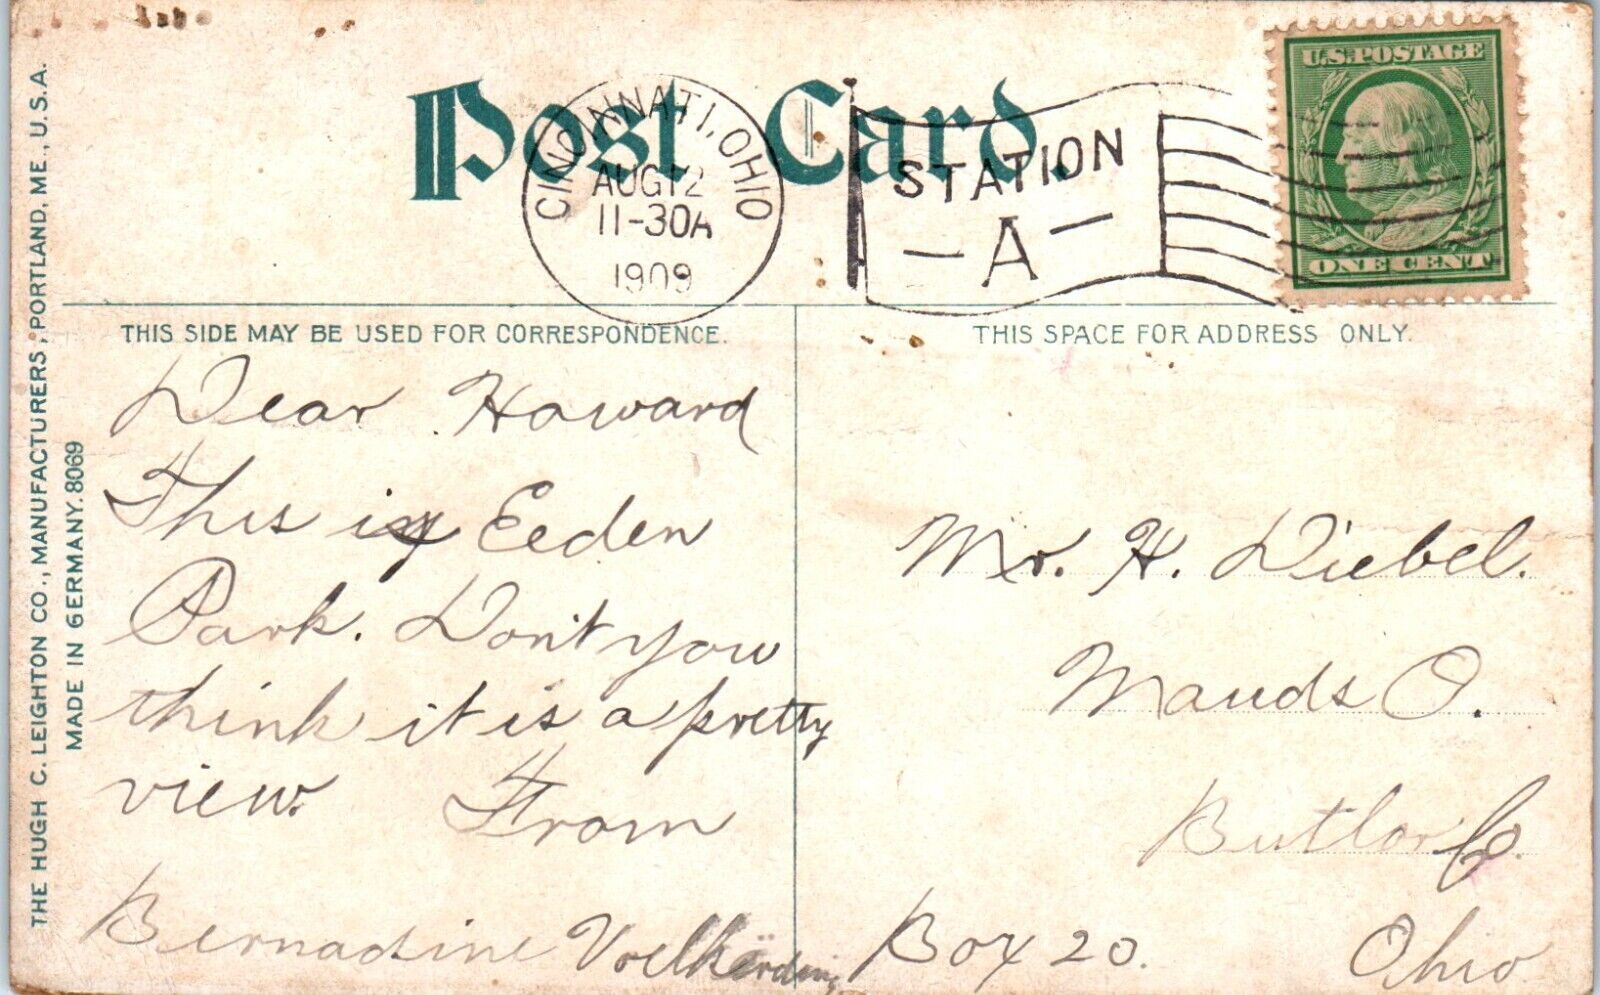 Post Card.
CINCINNATI, OHIO
AUG 12
11-30A
1909
STATION
- A -
U.S. POSTAGE
ONE CENT
THE HUGH C. LEIGHTON CO., MANUFACTURERS, PORTLAND, ME., U.S.A.
MADE IN GERMANY. 8069
THIS SIDE MAY BE USED FOR CORRESPONDENCE.
Dear Howard
This is Eeden
Park. Don't you
think it is a pretty
view. From
Bernadine
THIS SPACE FOR ADDRESS ONLY.
Mr. H. Diebel.
Mauds O.
Butler Co.
Box 20.
Ohio